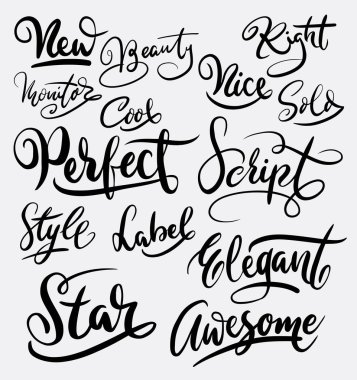 New
Beauty
Right
Monitor
Nice
Cool
Solo
Perfect
Script
Style
Label
Elegant
Star
Awesome